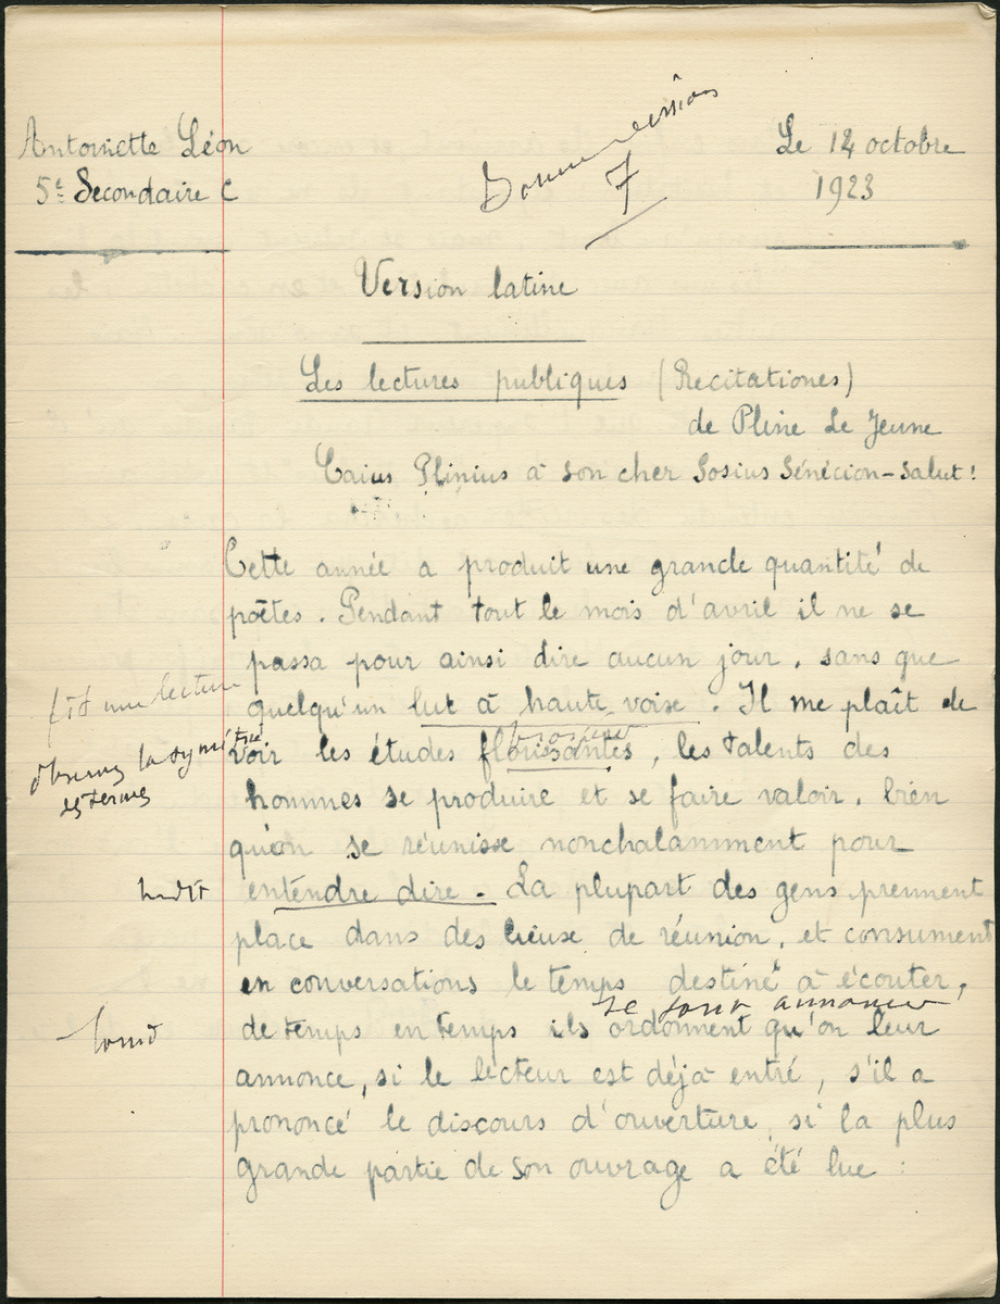 Antoinette Léon
5e Secondaire C
Bonne version
7
Le 12 octobre
1923
Version latine
Les lectures publiques (Recitationes)
de Pline Le Jeune
Caius Plinius à son cher Sosius Sénécion - Salut!
Cette année a produit une grande quantité de
poëtes. Pendant tout le mois d'avril il ne se
passa pour ainsi dire aucun jour, sans que
fît une lecture
quelqu'un lut à haute voixe. Il me plaît de
observez la symétrie
des termes
voir les études florissantes, les talents des
hommes se produire et se faire valoir, bien
qu'on se réunisse nonchalamment pour
entendre dire. La plupart des gens prennent
place dans des lieuxe de réunion, et consument
en conversations le temps destiné à écouter,
se font annoncer
lourd
de temps en temps ils ordonnent qu'on leur
annonce, si le lecteur est déjà entré, s'il a
prononcé le discours d'ouverture, si la plus
grande partie de son ouvrage a été lue :